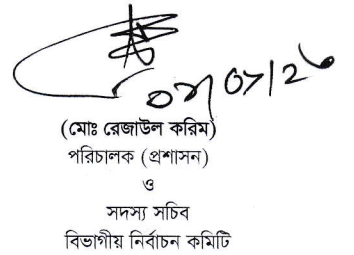 (মোঃ রেজাউল করিম)
পরিচালক (প্রশাসন)
ও
সদস্য সচিব
বিভাগীয় নির্বাচন কমিটি